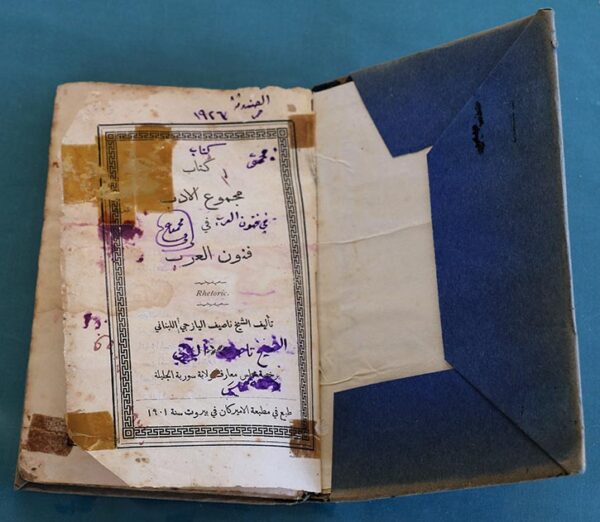 ١٩٢٦
كتاب
كتاب
مجموع الادب
في فنون العرب
في
فنون العرب
Rhetoric.
تأليف الشيخ ناصيف اليازجي اللبناني
الشيخ
مجلس معارف ولاية سورية الجليلة
طبع في مطبعة الاميركان في بيروت سنة ١٩٠١